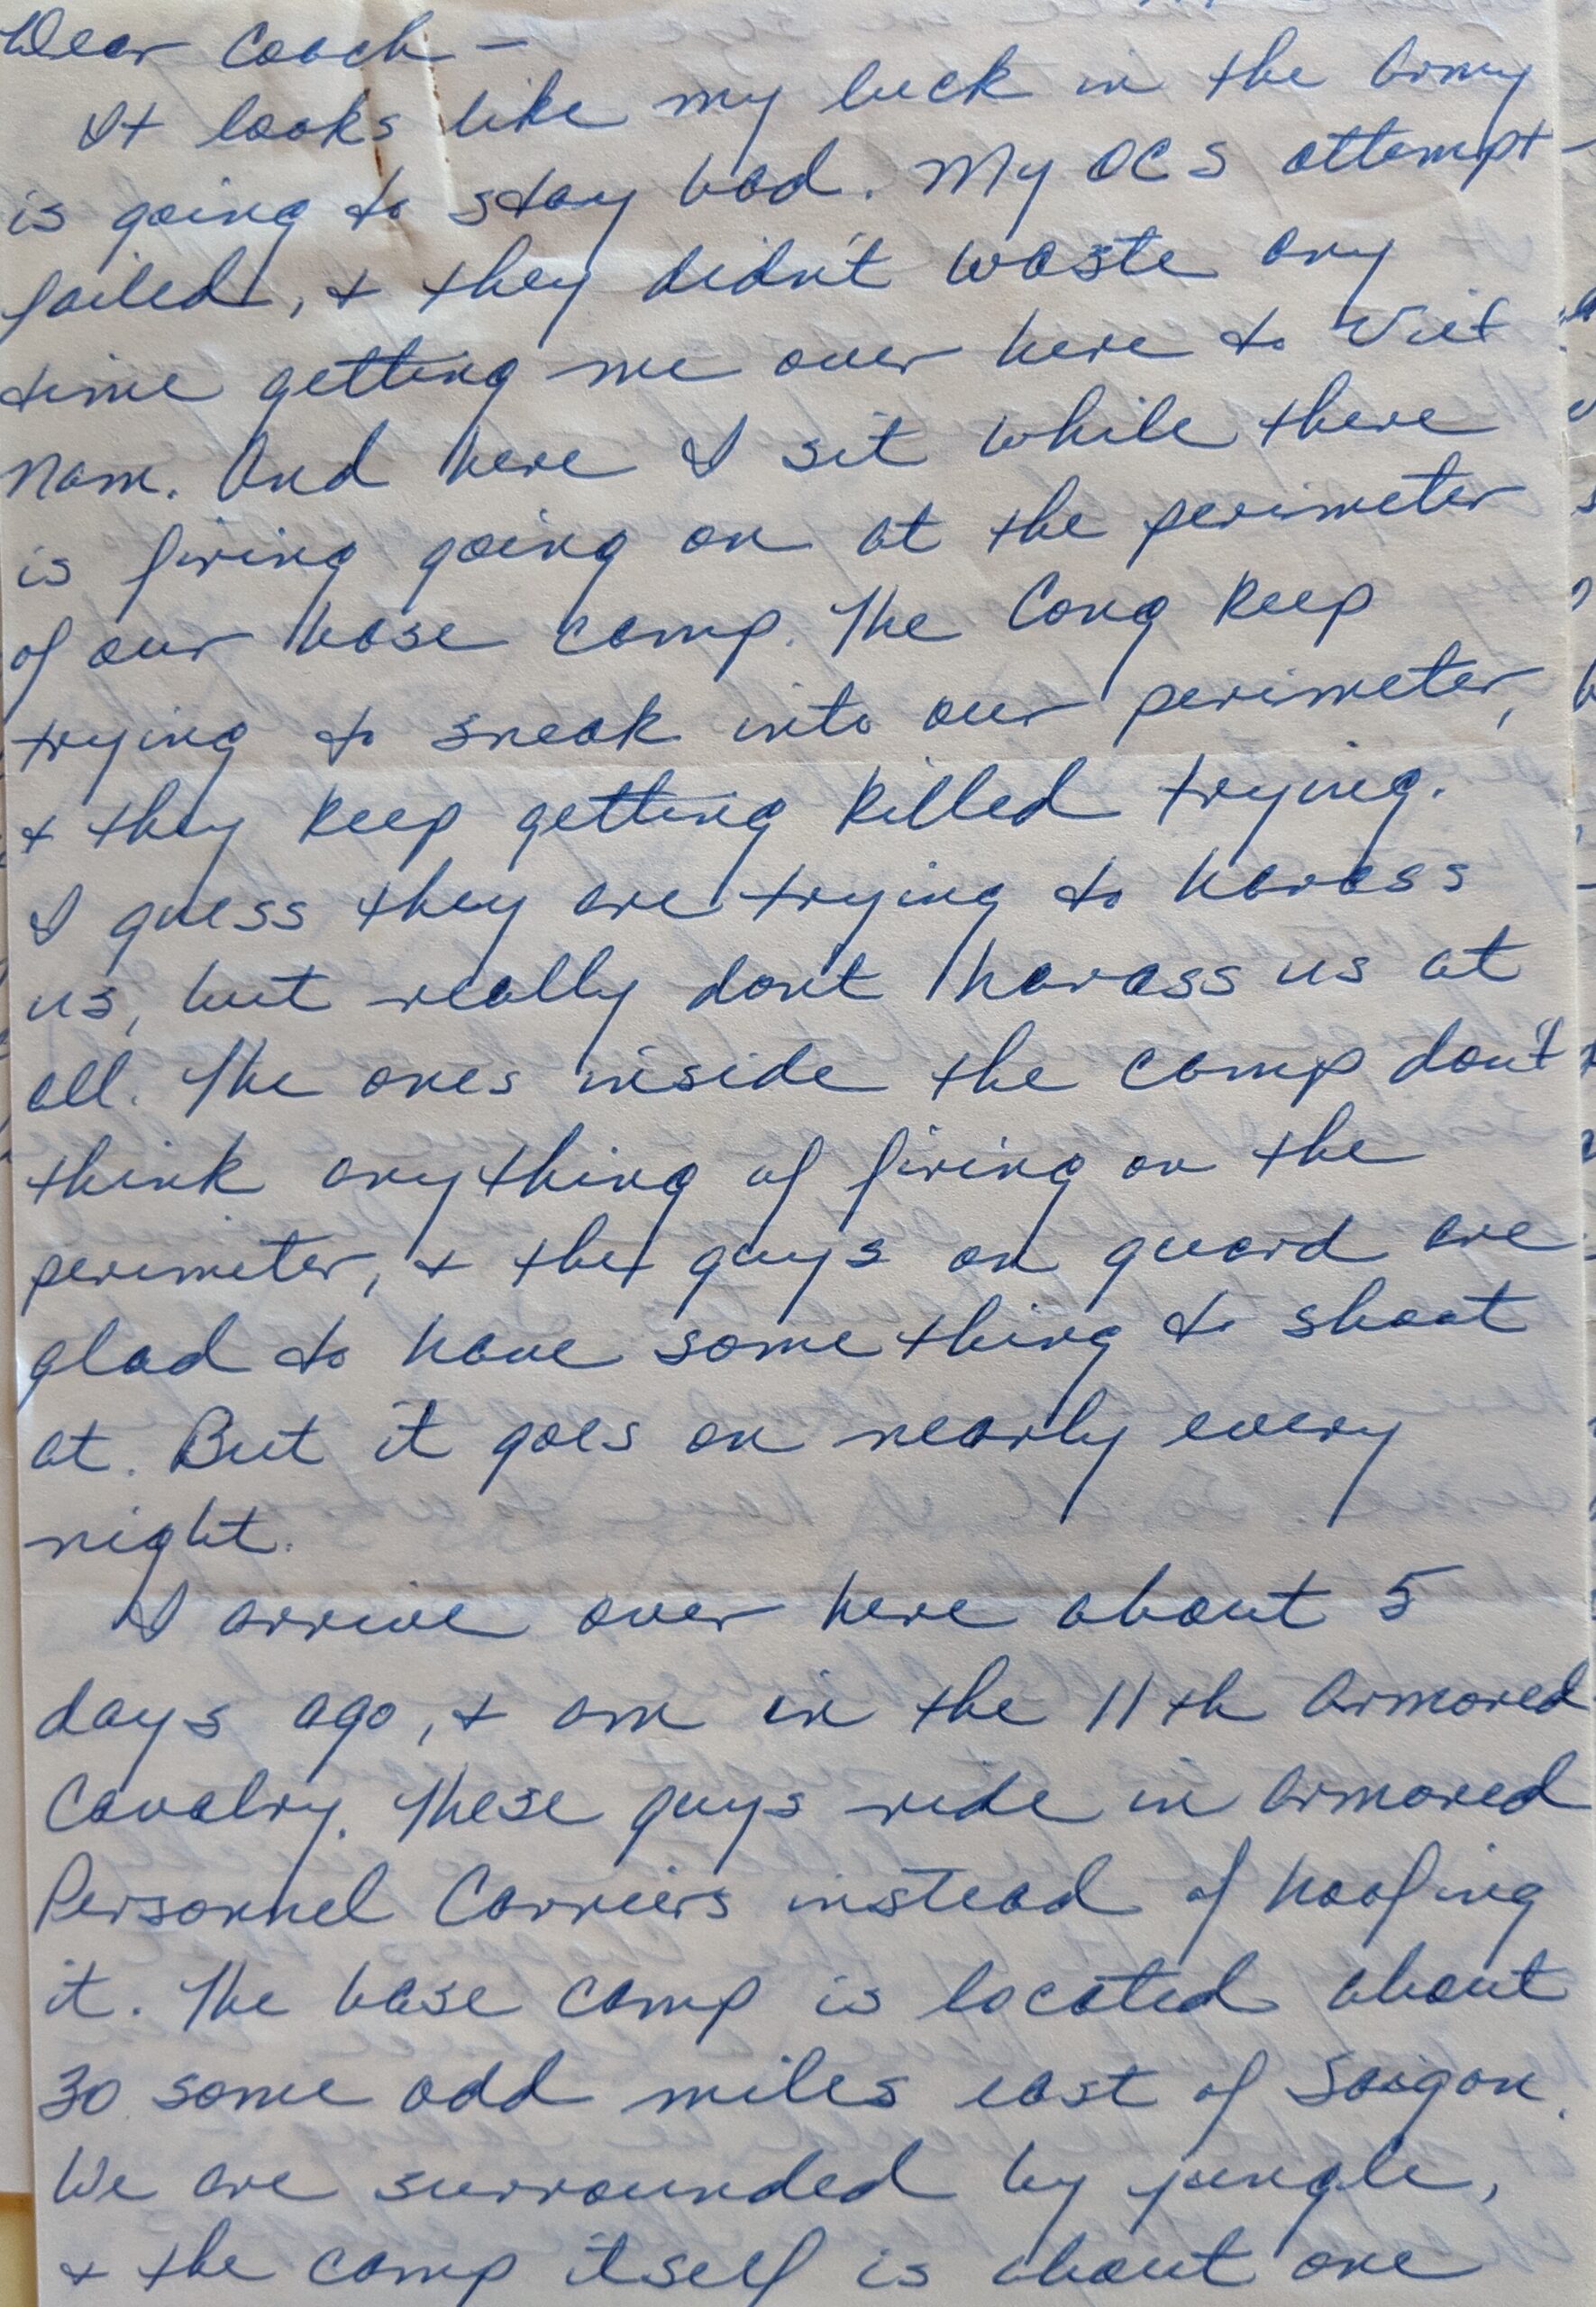 Dear Coach –
It looks like my luck in the Army
is going to stay bad. My OCS attempt
failed, + they didn't waste any
time getting me over here to Viet
Nam. And here I sit while there
is firing going on at the perimeter
of our base camp. The Cong keep
trying to sneak into our perimeter,
+ they keep getting killed trying.
I guess they are trying to harass
us, but really dont harass us at
all. The ones inside the camp don't
think anything of firing on the
perimeter, + the guys on guard are
glad to have something to shoot
at. But it goes on nearly every
night.
I arrive over here about 5
days ago, + am in the 11th Armored
Cavalry. These guys ride in Armored
Personnel Carriers instead of hoofing
it. The base camp is located about
30 some odd miles east of Saigon.
We are surrounded by jungle,
+ the camp itself is about one